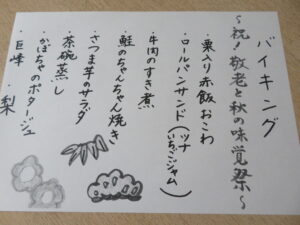 バイキング
~祝!敬老と秋の味覚祭~
・栗入り赤飯おこわ
・ロールパンサンド(ツナ いちごジャム)
・牛肉のすき煮
・鮭のちゃんちゃん焼き
・さつま芋のサラダ
・茶碗蒸し
・かぼちゃのポタージュ
・巨峰 ・梨